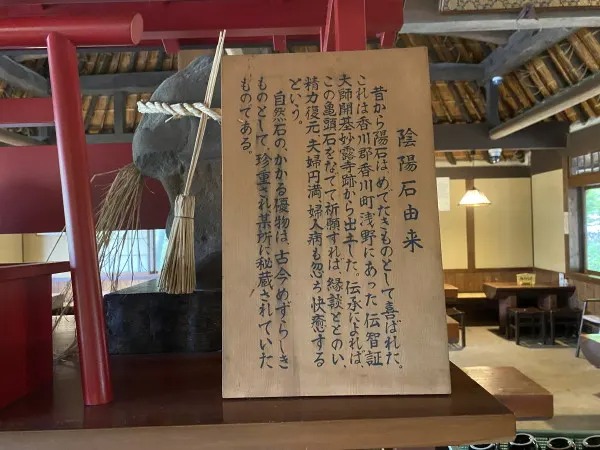 陰陽石由来
昔から陽石は、めでたきものとして喜ばれた。
これは香川郡香川町浅野にあった伝智証
大師開基妙露寺跡から出土した。伝承によれば、
この亀頭石をなでて祈願すれば、縁談ととのい、
精力復元、夫婦円満、婦人病も忽ち快癒する
という。
自然石の、かかる優物は、古今めずらしき
ものとして、珍重され某所に秘蔵されていた
ものである。